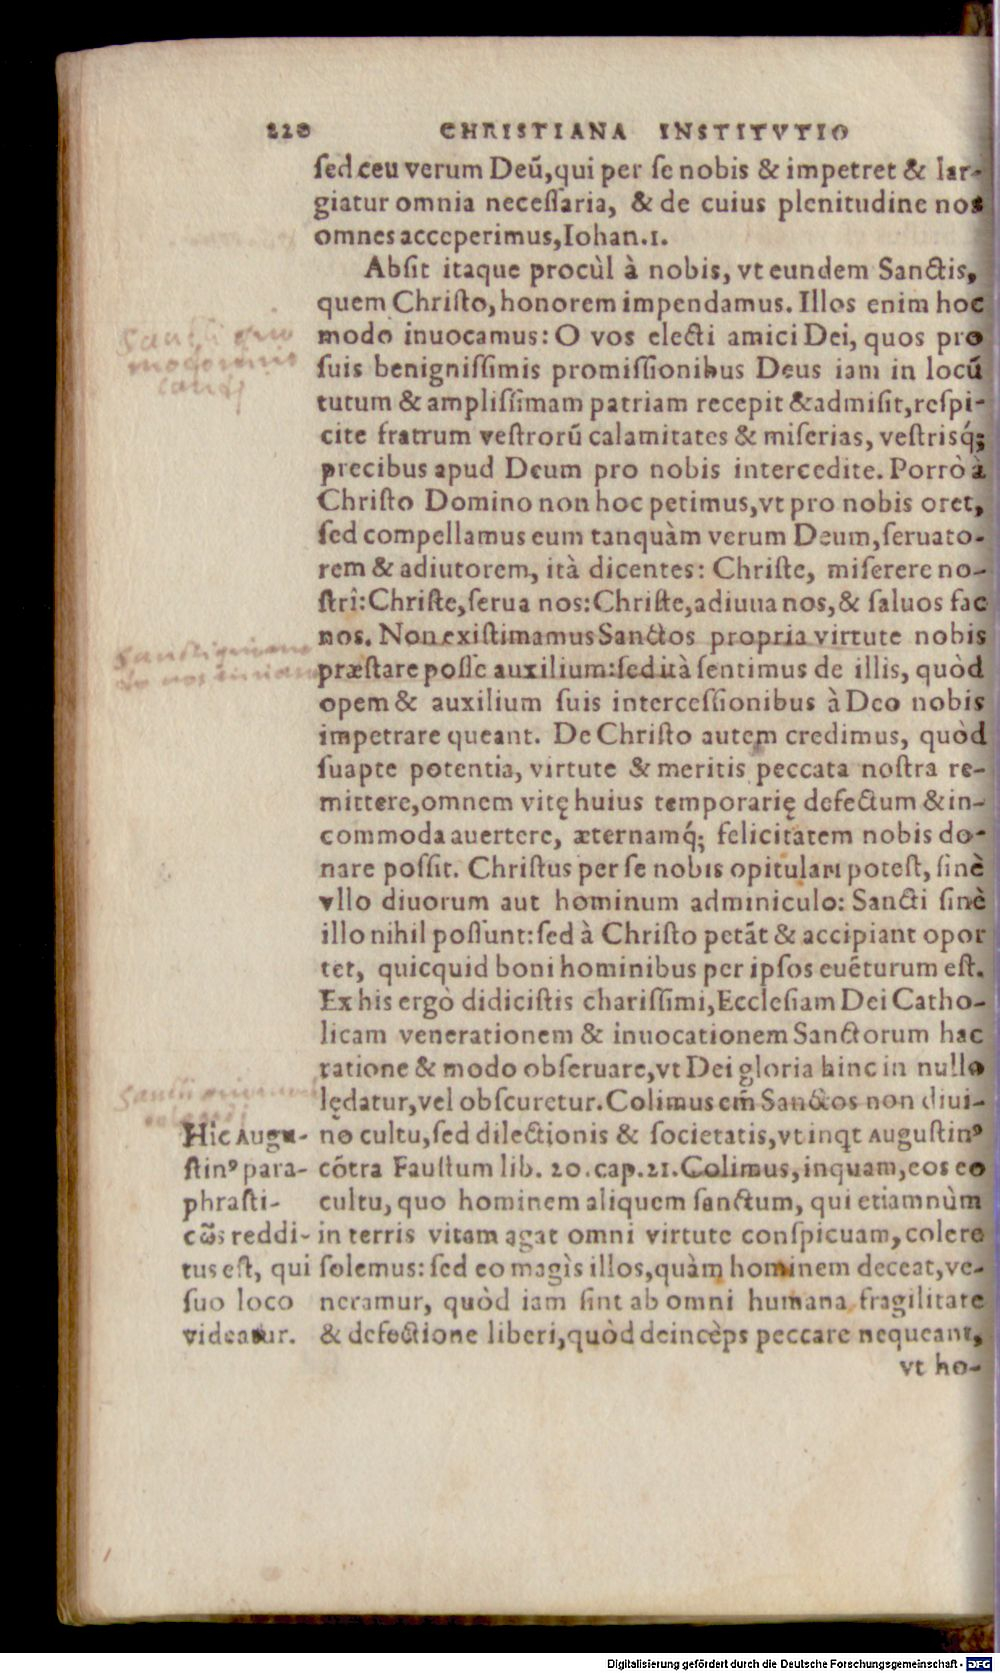 220 CHRISTIANA INSTITVTIO
sed ceu verum Deũ, qui per se nobis & impetret & lar-
giatur omnia necessaria, & de cuius plenitudine nos
omnes acceperimus, Iohan.1.
Absit itaque procùl à nobis, vt eundem Sanctis,
quem Christo, honorem impendamus. Illos enim hoc
modo inuocamus: O vos electi amici Dei, quos pro
suis benignissimis promissionibus Deus iam in locũ
tutum & amplissimam patriam recepit & admisit, respi-
cite fratrum vestrorũ calamitates & miserias, vestrisq́;
precibus apud Deum pro nobis intercedite. Porrò à
Christo Domino non hoc petimus, vt pro nobis oret,
sed compellamus eum tanquàm verum Deum, seruato-
rem & adiutorem, ità dicentes: Christe, miserere no-
strî: Christe, serua nos: Christe, adiuua nos, & saluos fac
nos. Non existimamus Sanctos propria virtute nobis
præstare posse auxilium: sed ità sentimus de illis, quòd
opem & auxilium suis intercessionibus à Deo nobis
impetrare queant. De Christo autem credimus, quòd
suapte potentia, virtute & meritis peccata nostra re-
mittere, omnem vitę huius temporarię defectum & in-
commoda auertere, æternamq́; felicitatem nobis do-
nare possit. Christus per se nobis opitulari potest, sinè
vllo diuorum aut hominum adminiculo: Sancti sinè
illo nihil possunt: sed à Christo petãt & accipiant opor
tet, quicquid boni hominibus per ipsos euẽturum est.
Ex his ergò didicistis charissimi, Ecclesiam Dei Catho-
licam venerationem & inuocationem Sanctorum hac
ratione & modo obseruare, vt Dei gloria hinc in nullo
lędatur, vel obscuretur. Colimus em̃ Sanctos non diui-
no cultu, sed dilectionis & societatis, vt inqt Augustinꝰ
cõtra Faustum lib. 20. cap. 21. Colimus, inquam, eos eo
cultu, quo hominem aliquem sanctum, qui etiamnùm
in terris vitam agat omni virtute conspicuam, colere
solemus: sed eo magìs illos, quàm hominem deceat, ve-
neramur, quòd iam sint ab omni humana fragilitate
& defectione liberi, quòd deincèps peccare nequeant,
vt ho-
Hic Augu-
stinꝰ para-
phrasti-
cῶs reddi-
tus est, qui
suo loco
videatur.
Digitalisierung gefördert durch die Deutsche Forschungsgemeinschaft - DFG